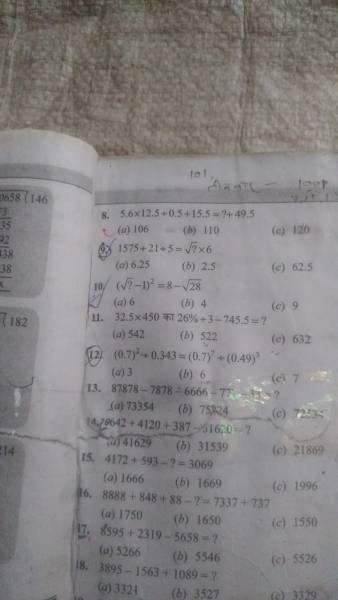 101
0658 146
73
35
92
938
38
182
214
8. 5.6×12.5÷0.5+15.5=?+49.5
(a) 106 (b) 110 (c) 120
9. 1575÷21÷5=√?×6
(a) 6.25 (b) 2.5 (c) 62.5
10. (√?−1)²=8−√28
(a) 6 (b) 4 (c) 9
11. 32.5×450 का 26%÷3−745.5=?
(a) 542 (b) 522 (c) 632
12. (0.7)²÷0.343=(0.7)⁷÷(0.49)³
(a) 3 (b) 6 (c) 7
13. 87878−7878−6666−
(a) 73354 (b) (c)
14. +4120+387 = ?
(a) 41629 (b) 31539 (c) 21869
15. 4172+593−?=3069
(a) 1666 (b) 1669 (c) 1996
16. 8888+848+88−?=7337+737
(a) 1750 (b) 1650 (c) 1550
17. 8595+2319−5658=?
(a) 5266 (b) 5546 (c) 5526
18. 3895−1563+1089=?
(a) 3321 (b) 3527 (c) 3329